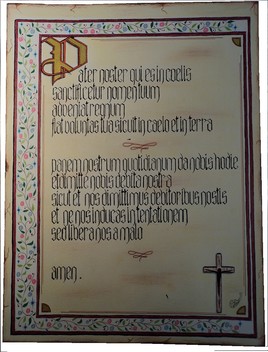 Pater noster qui es in coelis
sanctificetur nomen tuum
adveniat regnum
fiat voluntas tua sicut in caelo et in terra
panem nostrum quotidianum da nobis hodie
et dimitte nobis debita nostra
sicut et nos dimittimus debitoribus nostis
et ne nos inducas in tentationem
sed libera nos a malo
amen.